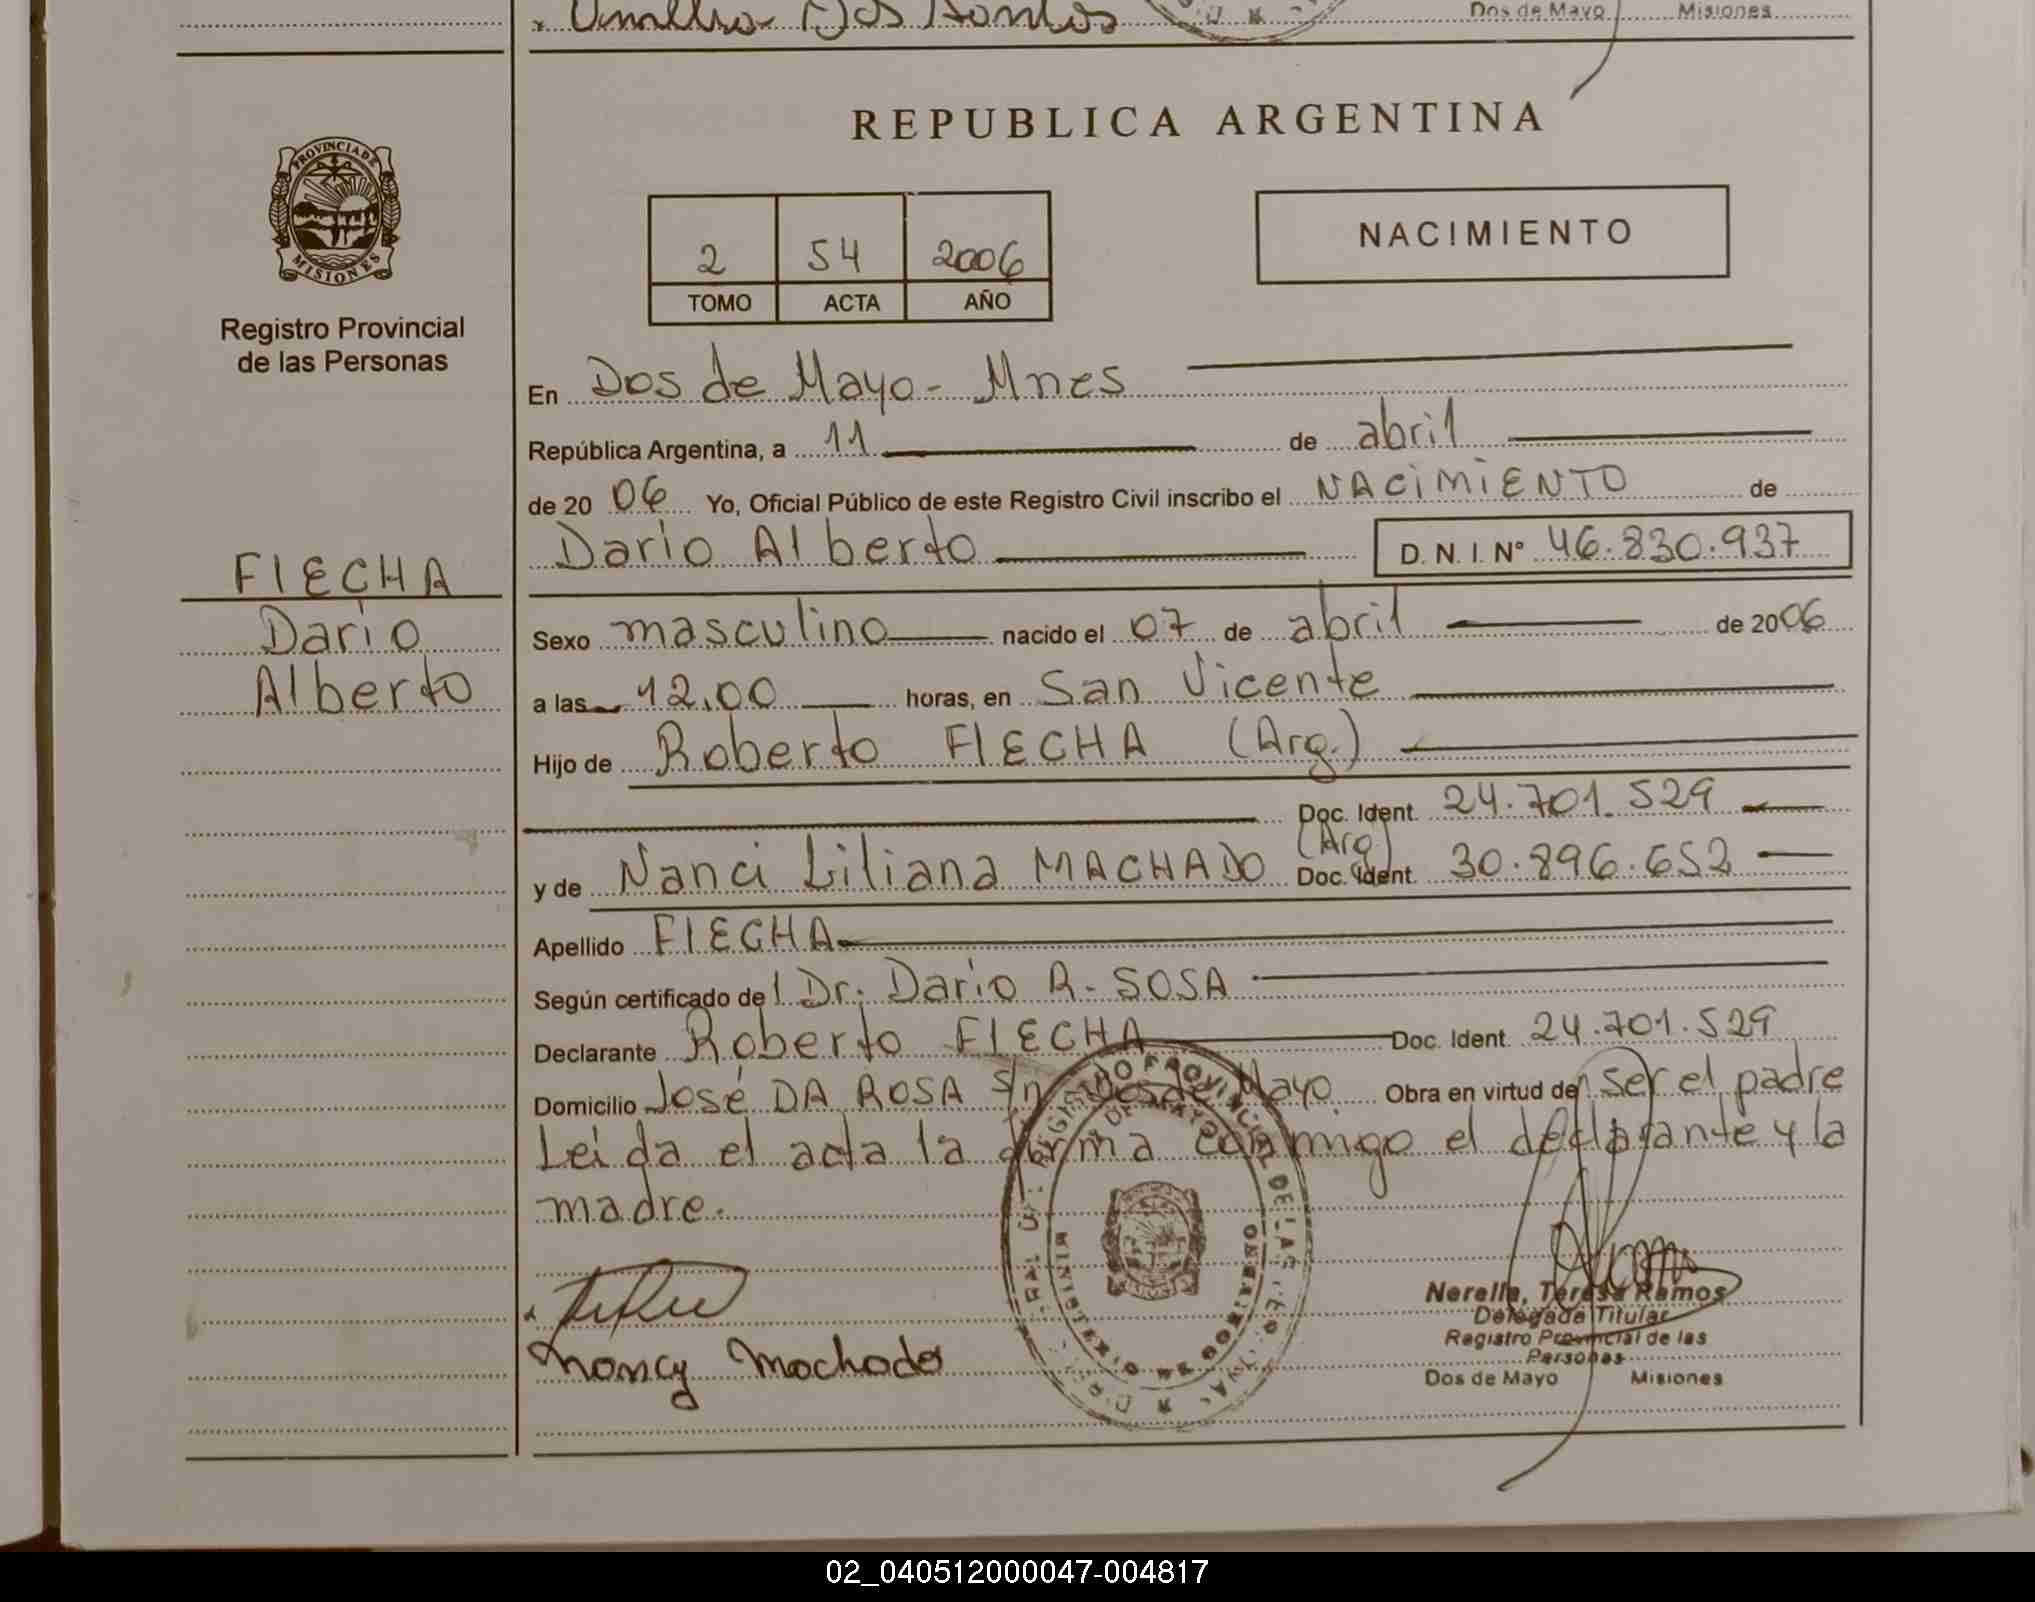 Dos de Mayo Misiones
REPUBLICA ARGENTINA
PROVINCIA DE
MISIONES
Registro Provincial
de las Personas
2 54 2006
TOMO ACTA AÑO
NACIMIENTO
En Dos de Mayo - Mnes
República Argentina, a 11 de abril
de 2006 Yo, Oficial Público de este Registro Civil inscribo el NACIMIENTO de
Dario Alberto D. N. I. N° 46.830.937
FlECHA
Dario
Alberto
Sexo masculino nacido el 07 de abril de 2006
a las 12,00 horas, en San Vicente
Hijo de Roberto FlECHA (Arg.)
Doc. Ident. 24.701.529
y de Nanci Liliana MACHADO (Arg) Doc. Ident. 30.896.652
Apellido FlECHA
Según certificado del Dr. Dario R. SOSA
Declarante Roberto FlECHA Doc. Ident. 24.701.529
Domicilio José DA ROSA S/n Dos de Mayo. Obra en virtud de ser el padre
Leida el acta la firma conmigo el declarante y la
madre.
Nancy Machado
REGISTRO PROVINCIAL DE LAS
MINISTERIO DE GOBIERNO
Nerella, Teresa Ramos
Delegada Titular
Registro Provincial de las
Personas
Dos de Mayo Misiones
02_040512000047-004817